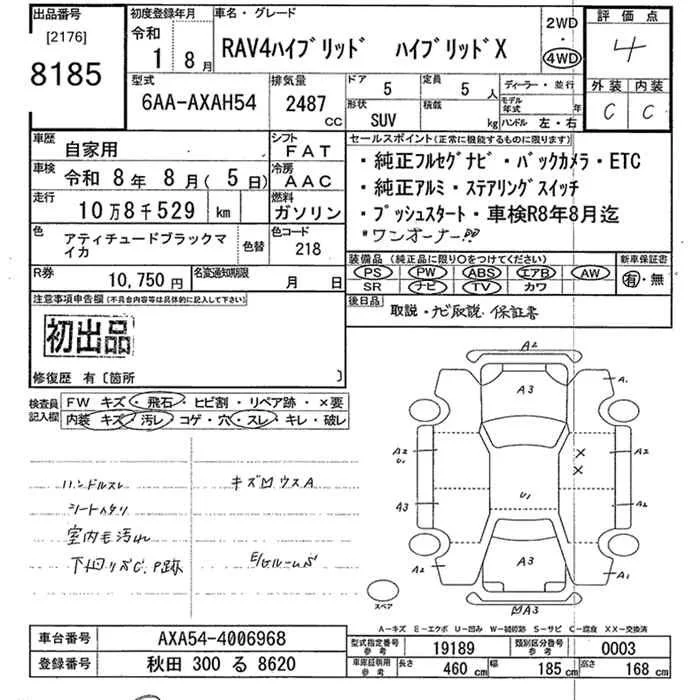 出品番号
[2176]
8185
初度登録年月
令和
1 8月
車名・グレード
RAV4ハイブリッド ハイブリッドX
2WD
・
4WD
評価点
4
外装 内装
C C
型式
6AA-AXAH54
排気量
2487 CC
ドア
5
定員
5 人
形状
SUV
積載
kg
ディーラー・並行
モデル年式 年
ハンドル 左・右
車歴
自家用
シフト
FAT
車検
令和 8年 8月(5日)
冷房
AAC
走行
10万8千529 km
燃料
ガソリン
色
アティチュードブラックマイカ
色替
色コード
218
R券
10,750円
名変通知期限
月 日
セールスポイント(正常に機能するものに限ります)
・純正フルセグナビ・バックカメラ・ETC
・純正アルミ・ステアリングスイッチ
・プッシュスタート・車検R8年8月迄
*ワンオーナー!!
装備品(純正品に限り○をつけてください)
PS PW ABS エアB AW
SR ナビ TV カワ
新車保証書
有・無
後日品
取説・ナビ取説・保証書
注意事項申告欄(不具合内容等は具体的に記入して下さい)
初出品
修復歴 有〔箇所 〕
検査員記入欄
FW キズ・飛石・ヒビ割・リペア跡・×要
内装 キズ・汚レ・コゲ・穴・スレ・キレ・破レ
ハンドルスレ
シートヘタリ
室内毛汚れ
下廻りサビC.P跡
キズ凹ウスA
E/GルームS
A2
A3
A1
A2
U1
A2
×
×
A3
U1
A2
A2
A3
A1
凹A3
スペア
A-キズ E-エクボ U-凹み W-補修跡 S-サビ C-腐食 XX-交換済
車台番号
AXA54-4006968
登録番号
秋田 300 る 8620
型式指定番号 参考
19189
類別区分番号 参考
0003
車庫証明用 参考
長さ 460 cm 幅 185 cm 高さ 168 cm